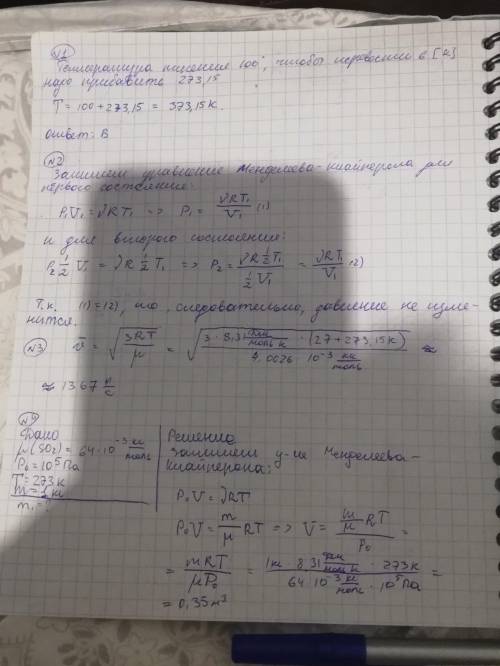 №1
Температура кипения 100°, чтобы перевести в [K]
надо прибавить 273,15
T = 100 + 273,15 = 373,15 K.
Ответ: В
№2
Запишем уравнение Менделеева-Клайперона для
первого состояния:
P₁V₁ = √RT₁ => P₁ = √RT₁/V₁ (1)
и для второго состояния:
P₂ 1/2 V₁ = √R 1/2 T₁ => P₂ = √R 1/2 T₁ / 1/2 V₁ = √RT₁/V₁ (2)
Т.к. (1) = (2), то, следовательно, давление не изме-
нится.
№3 v = √(3RT/μ) = √(3 · 8,31 Дж/моль К · (27+273,15K) / 4,0026 · 10⁻³ кг/моль) ≈
≈ 1367 м/с
№4
Дано
μ(SO₂) = 64·10⁻³ кг/моль
P₀ = 10⁵ Па
T = 273 K
m = 1 кг
Решение
Запишем у-ие Менделеева-
Клайперона:
P₀V = √RT
P₀V = m/μ RT => V = m/μ RT / P₀ =
= mRT/μP₀ = 1кг · 8,31 Дж/моль К · 273 K / 64·10⁻³ кг/моль · 10⁵ Па =
= 0,35 м³